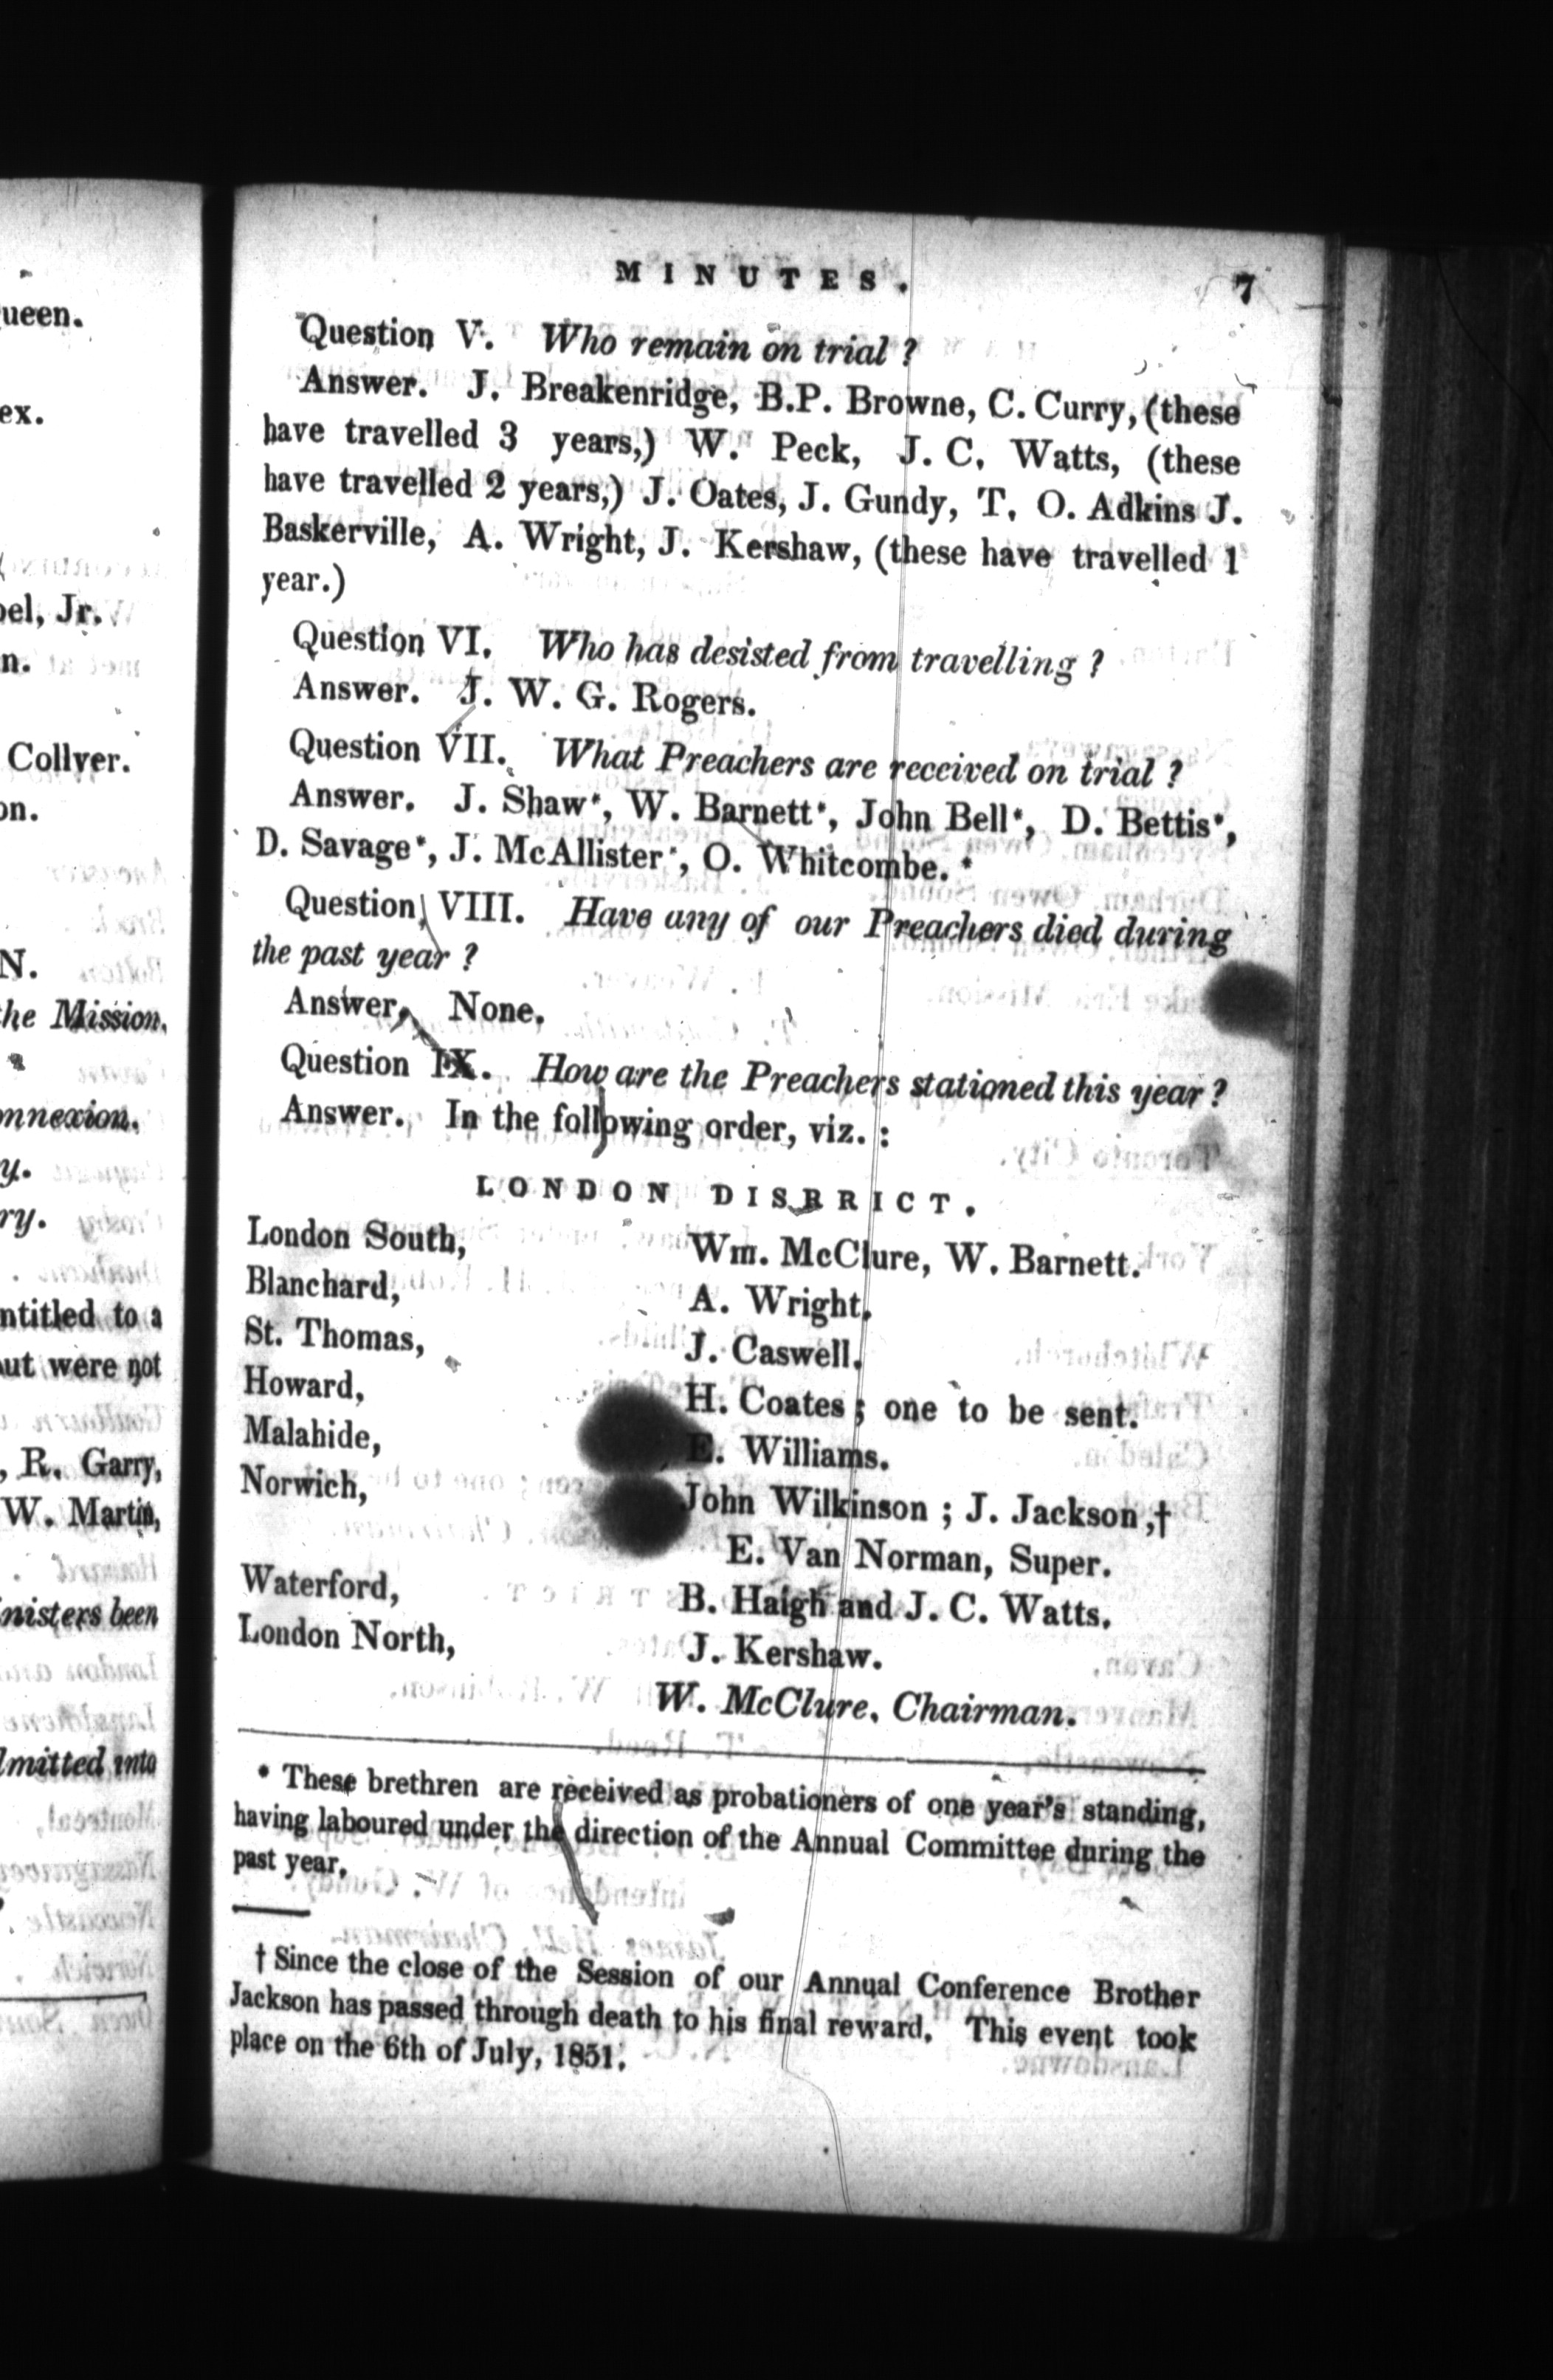 ueen.
ex.
el, Jr.
n.
Collver.
on.
N.
he Mission.
nnexion.
y.
ry.
ntitled to a
ut were not
, R. Garry,
W. Martin,
nisters been
lmitted into
MINUTES. 7
Question V. Who remain on trial ?
Answer. J. Breakenridge, B.P. Browne, C. Curry, (these
have travelled 3 years,) W. Peck, J. C. Watts, (these
have travelled 2 years,) J. Oates, J. Gundy, T. O. Adkins J.
Baskerville, A. Wright, J. Kershaw, (these have travelled 1
year.)
Question VI. Who has desisted from travelling ?
Answer. J. W. G. Rogers.
Question VII. What Preachers are received on trial ?
Answer. J. Shaw*, W. Barnett*, John Bell*, D. Bettis*,
D. Savage*, J. McAllister*, O. Whitcombe. *
Question VIII. Have any of our Preachers died during
the past year ?
Answer. None.
Question IX. How are the Preachers stationed this year ?
Answer. In the following order, viz. :
LONDON DISRRICT.
London South, Wm. McClure, W. Barnett.
Blanchard, A. Wright.
St. Thomas, J. Caswell.
Howard, H. Coates ; one to be sent.
Malahide, E. Williams.
Norwich, John Wilkinson ; J. Jackson,†
E. Van Norman, Super.
Waterford, B. Haigh and J. C. Watts.
London North, J. Kershaw.
W. McClure, Chairman.
* These brethren are received as probationers of one year's standing,
having laboured under the direction of the Annual Committee during the
past year.
† Since the close of the Session of our Annual Conference Brother
Jackson has passed through death to his final reward. This event took
place on the 6th of July, 1851.